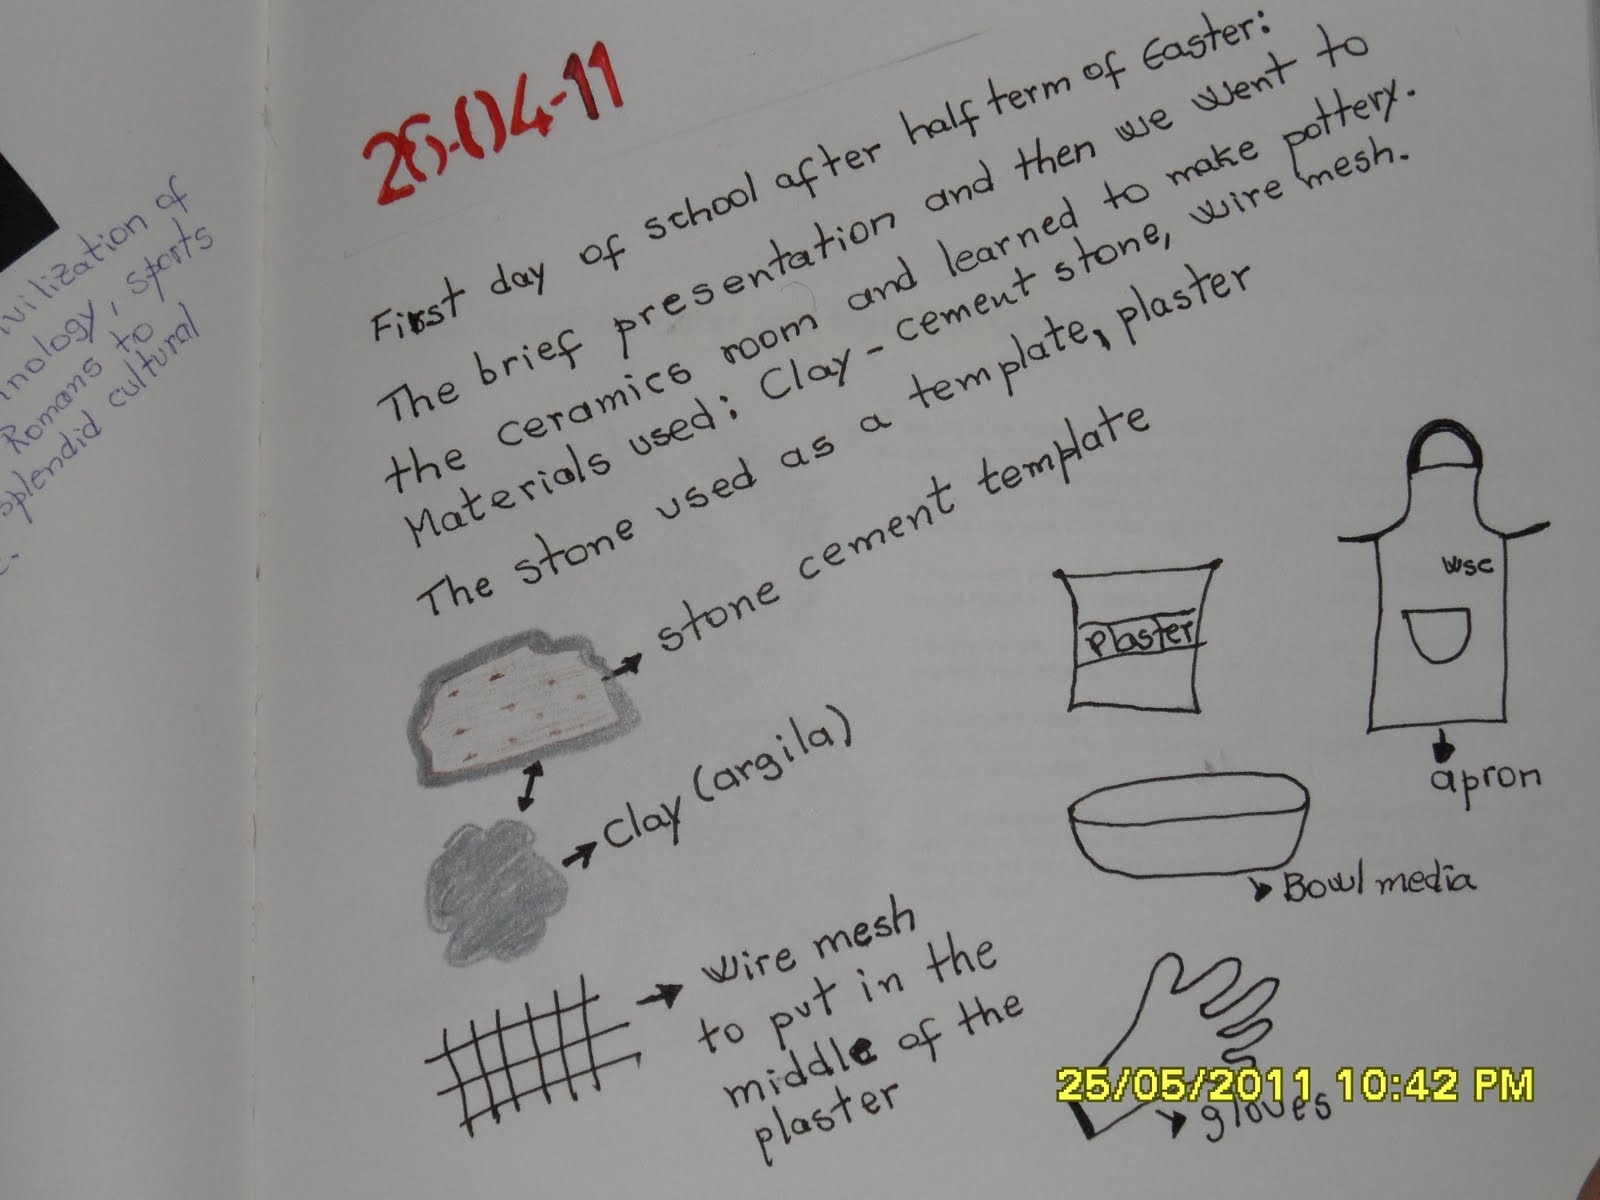 ivilization of
nology, sports
Romans to
splendid cultural
26-04-11
First day of school after half term of Easter:
The brief presentation and then we went to
the ceramics room and learned to make pottery.
Materials used: Clay-cement stone, wire mesh.
The stone used as a template, plaster
stone cement template
Clay (argila)
wire mesh
to put in the
middle of the
plaster
Plaster
WSC
apron
Bowl media
gloves
25/05/2011 10:42 PM